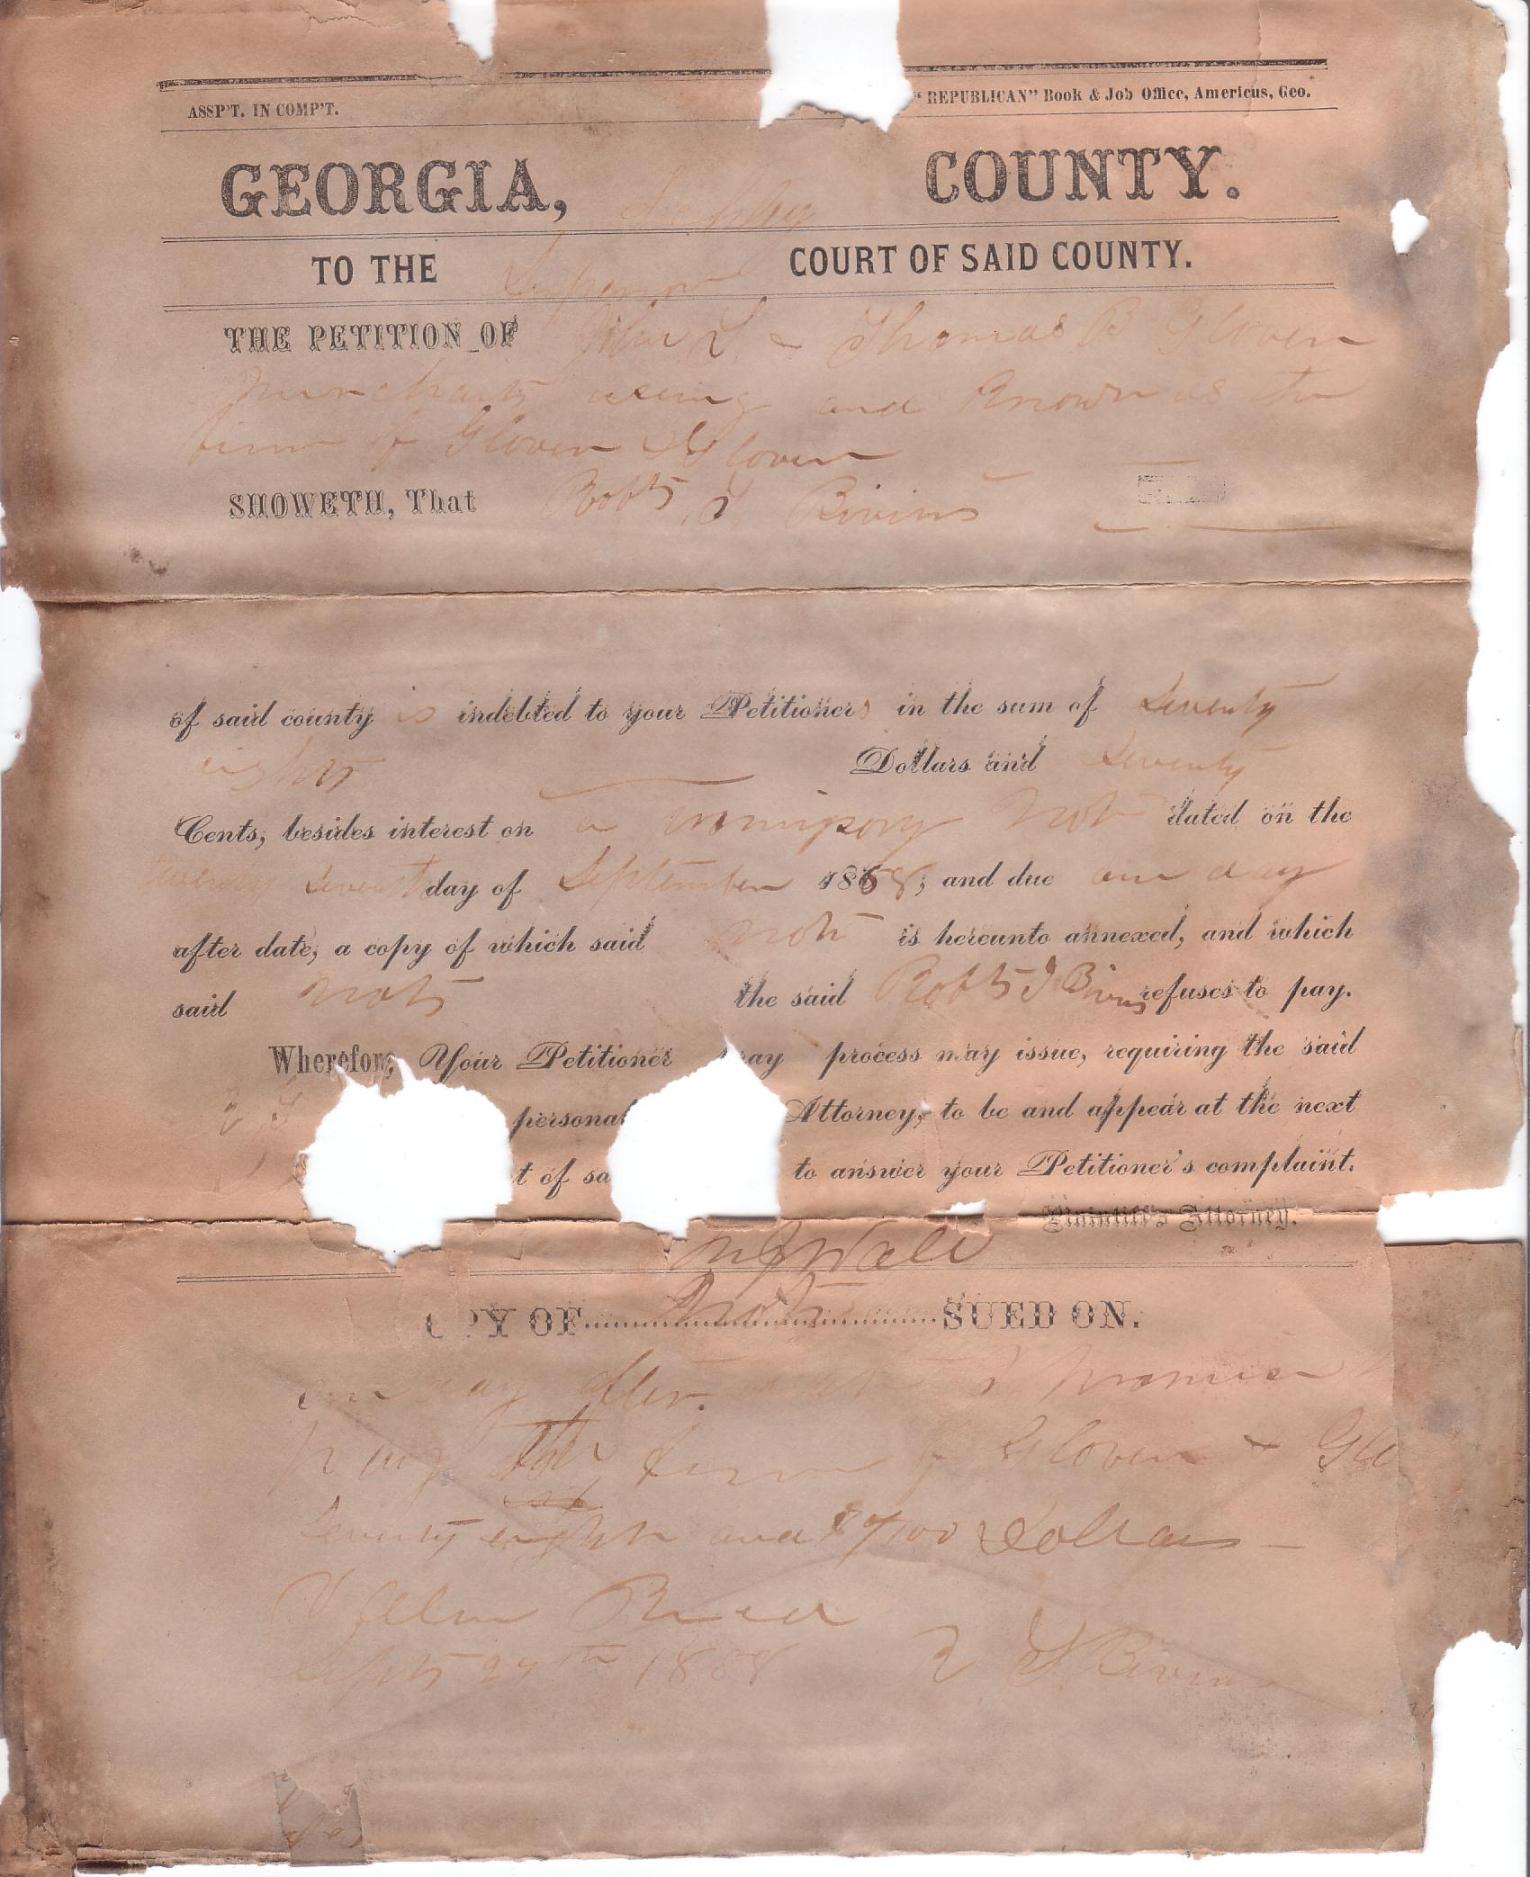 ASSP'T. IN COMP'T. "REPUBLICAN" Book & Job Office, Americus, Geo.
GEORGIA, COUNTY.
TO THE Superior COURT OF SAID COUNTY.
THE PETITION OF John & Thomas B Glover
Merchants using and Known as the
firm of Glover & Glover
SHOWETH, That Robts Bivins
of said county is indebted to your Petitioners in the sum of Seventy
eight Dollars and Seventy
Cents, besides interest on a promisory note dated on the
twenty seventh day of September 1858; and due one day
after date, a copy of which said note is hereunto annexed, and which
said note the said Robts Bivins refuses to pay.
Wherefore, Your Petitioner pray process may issue, requiring the said
personal Attorney, to be and appear at the next
t of sa to answer your Petitioner's complaint.
Plaintiff's Attorney.
COPY OF Note SUED ON.
one day after I promise
pay the firm of Glover & Glo
Seventy eight and /100 Dollars
Value Recd
Septs 27th 1858 R Bivins